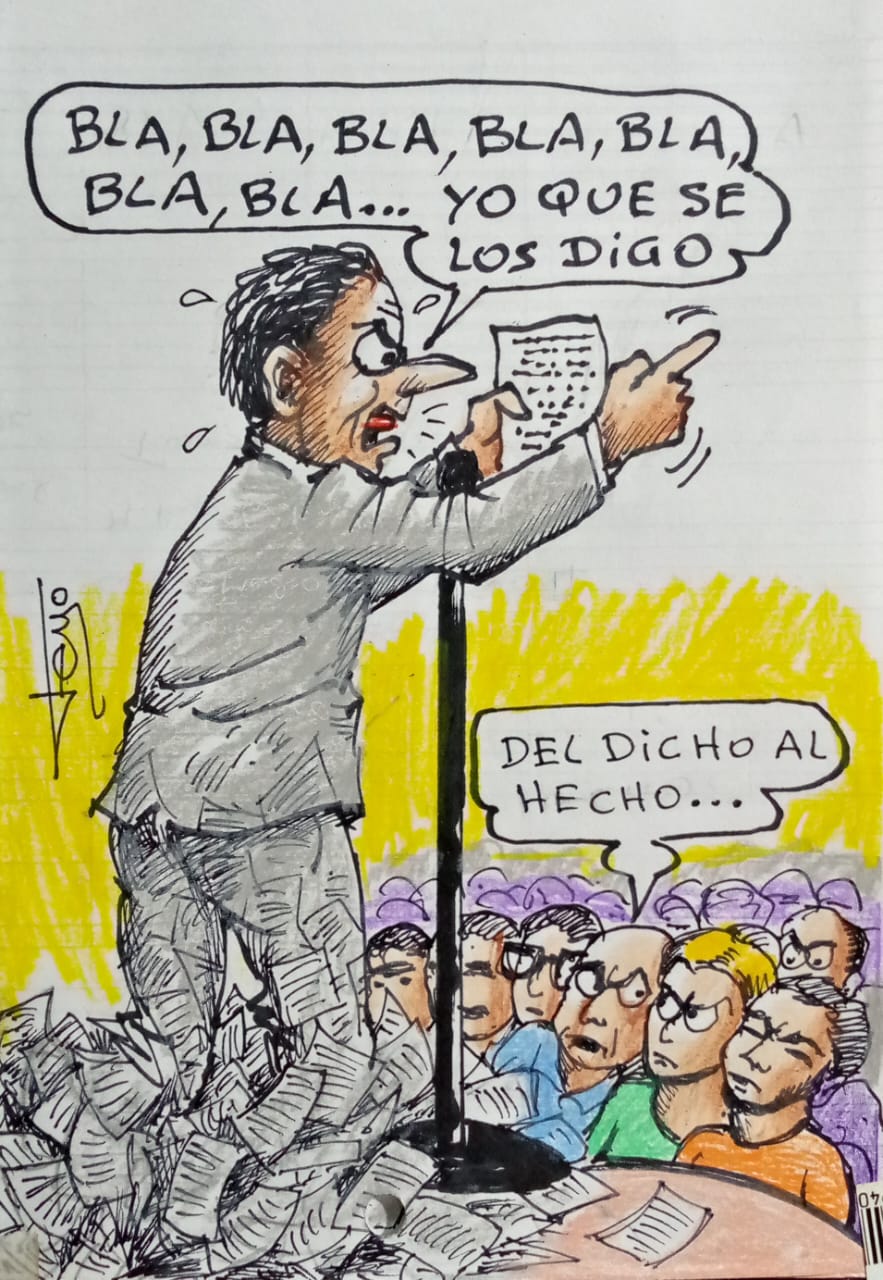 BLA, BLA, BLA, BLA, BLA,
BLA, BLA... YO QUE SE
LOS DiGO
DEL DiCHO AL
HECHO...
40